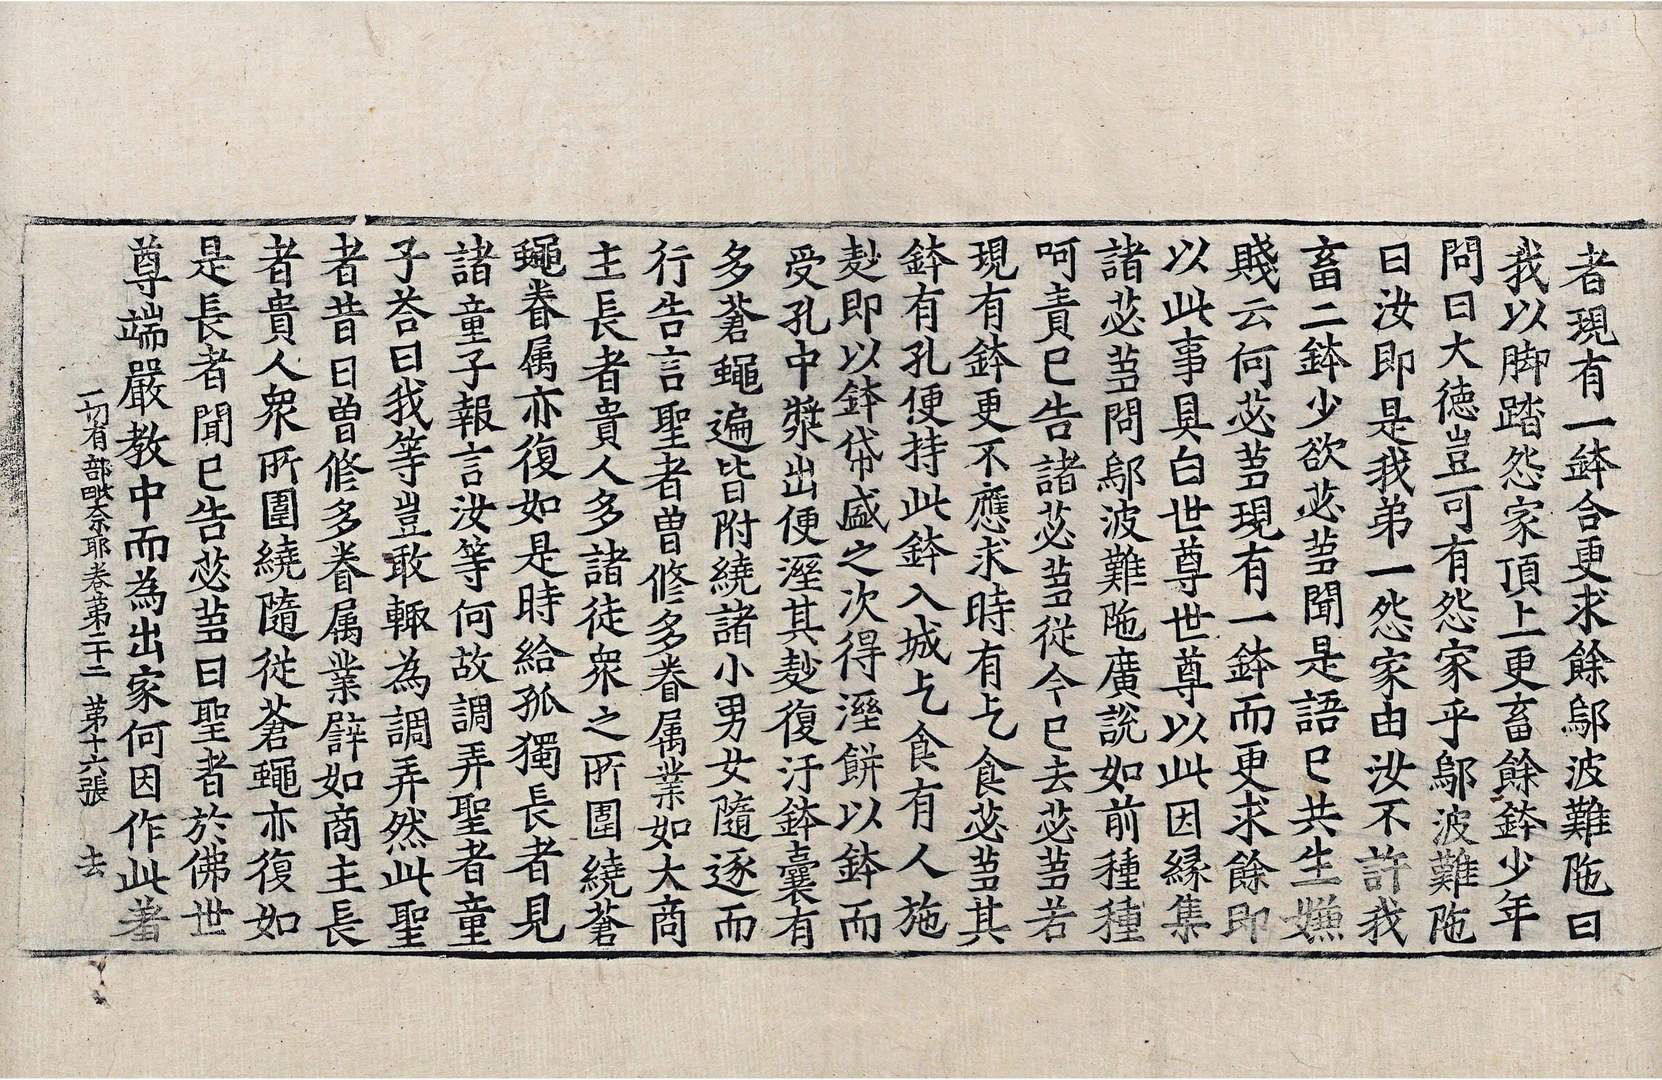 者現有一鉢合更求餘鄔波難陁曰
我以脚踏怨家頂上更畜餘鉢少年
問曰大徳豈可有怨家乎鄔波難陁
曰汝即是我弟一怨家由汝不許我
畜二鉢少欲苾蒭聞是語已共生嫌
賤云何苾蒭現有一鉢而更求餘即
以此事具白世尊世尊以此因縁集
諸苾蒭問鄔波難陁廣說如前種種
呵責已告諸苾蒭從今已去苾蒭若
現有鉢更不應求時有乞食苾蒭其
鉢有孔便持此鉢入城乞食有人施
麨即以鉢帒盛之次得溼餅以鉢而
受孔中漿出便溼其麨復汙鉢囊有
多蒼蠅遍皆附繞諸小男女隨逐而
行告言聖者曽修多眷属業如大商
主長者貴人多諸徒衆之所圍繞蒼
蠅眷属亦復如是時給孤獨長者見
諸童子報言汝等何故調弄聖者童
子荅曰我等豈敢輙為調弄然此聖
者昔日曽修多眷属業譬如商主長
者貴人衆所圍繞隨從蒼蠅亦復如
是長者聞已告苾蒭曰聖者於佛世
尊端嚴教中而為出家何因作此著
一切有部毗奈耶卷第二十二 第十六張 去